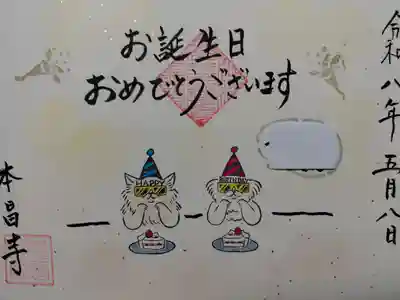 令和八年五月八日
お誕生日
おめでとうございます
HAPPY
BIRTHDAY
本昌寺